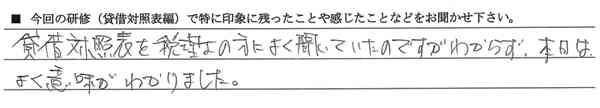 ■ 今回の研修(貸借対照表編)で特に印象に残ったことや感じたことなどをお聞かせ下さい。
貸借対照表を税理士の方によく聞いていたのですがわからず、本日は
よく意味がわかりました。